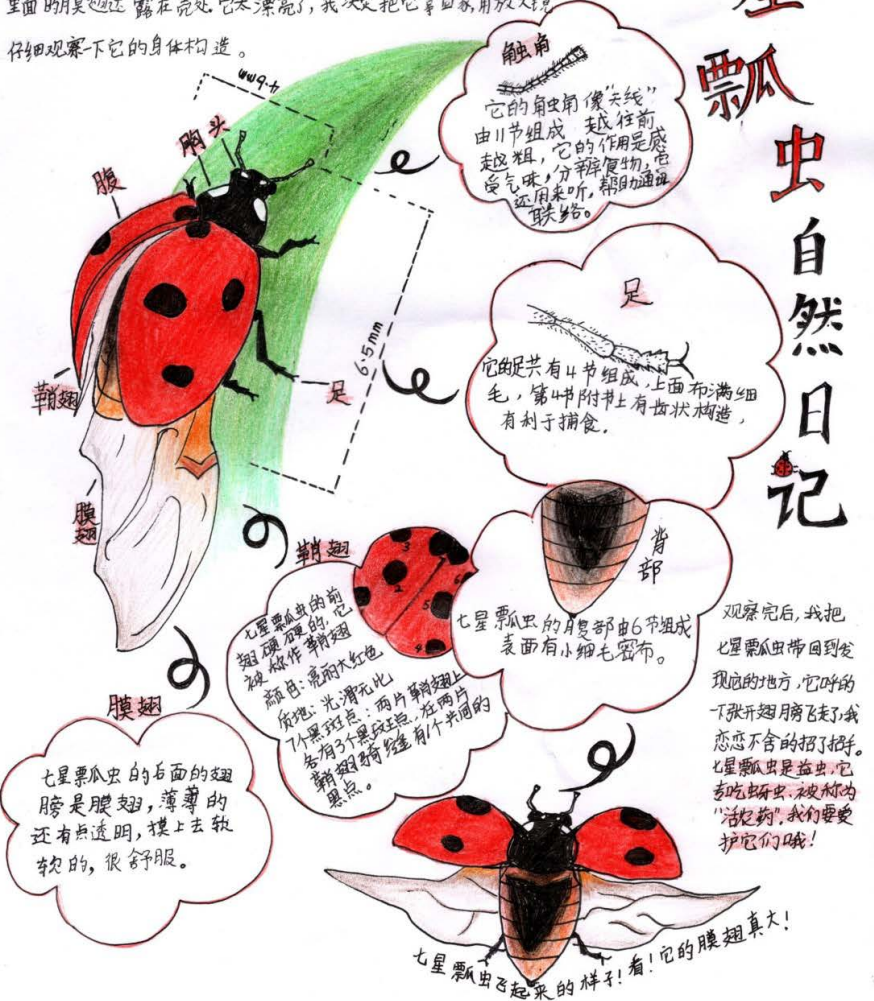 里面的膜翅还露在壳处。它太漂亮了，我决定把它拿回家用放大镜
仔细观察一下它的身体构造。
瓢
虫
自
然
日
记
4.6mm
头
胸
腹
鞘翅
膜翅
足
6.5mm
触角
它的触角像“天线”
由11节组成，越往前
越粗，它的作用是感
受气味，分辨食物，它
还用来听，帮助通讯
联络。
足
它的足共有4节组成，上面布满细
毛，第4节附节上有齿状构造，
有利于捕食。
背
部
七星瓢虫的腹部由6节组成
表面有小细毛密布。
鞘翅
3
2
5
6
七星瓢虫的前
翅硬硬的，它
被称作鞘翅
颜色：亮丽大红色
质地：光滑无比
7个黑斑点：两片鞘翅上
各有3个黑斑点，在两片
鞘翅骑缝有1个共同的
黑点。
膜翅
七星瓢虫的后面的翅
膀是膜翅，薄薄的
还有点透明，摸上去软
软的，很舒服。
观察完后，我把
七星瓢虫带回到发
现它的地方，它呼的
一下张开翅膀飞走了，我
恋恋不舍的招了招手。
七星瓢虫是益虫，它
专吃蚜虫，被称为
“活农药”，我们要爱
护它们哦！
七星瓢虫飞起来的样子！看！它的膜翅真大！